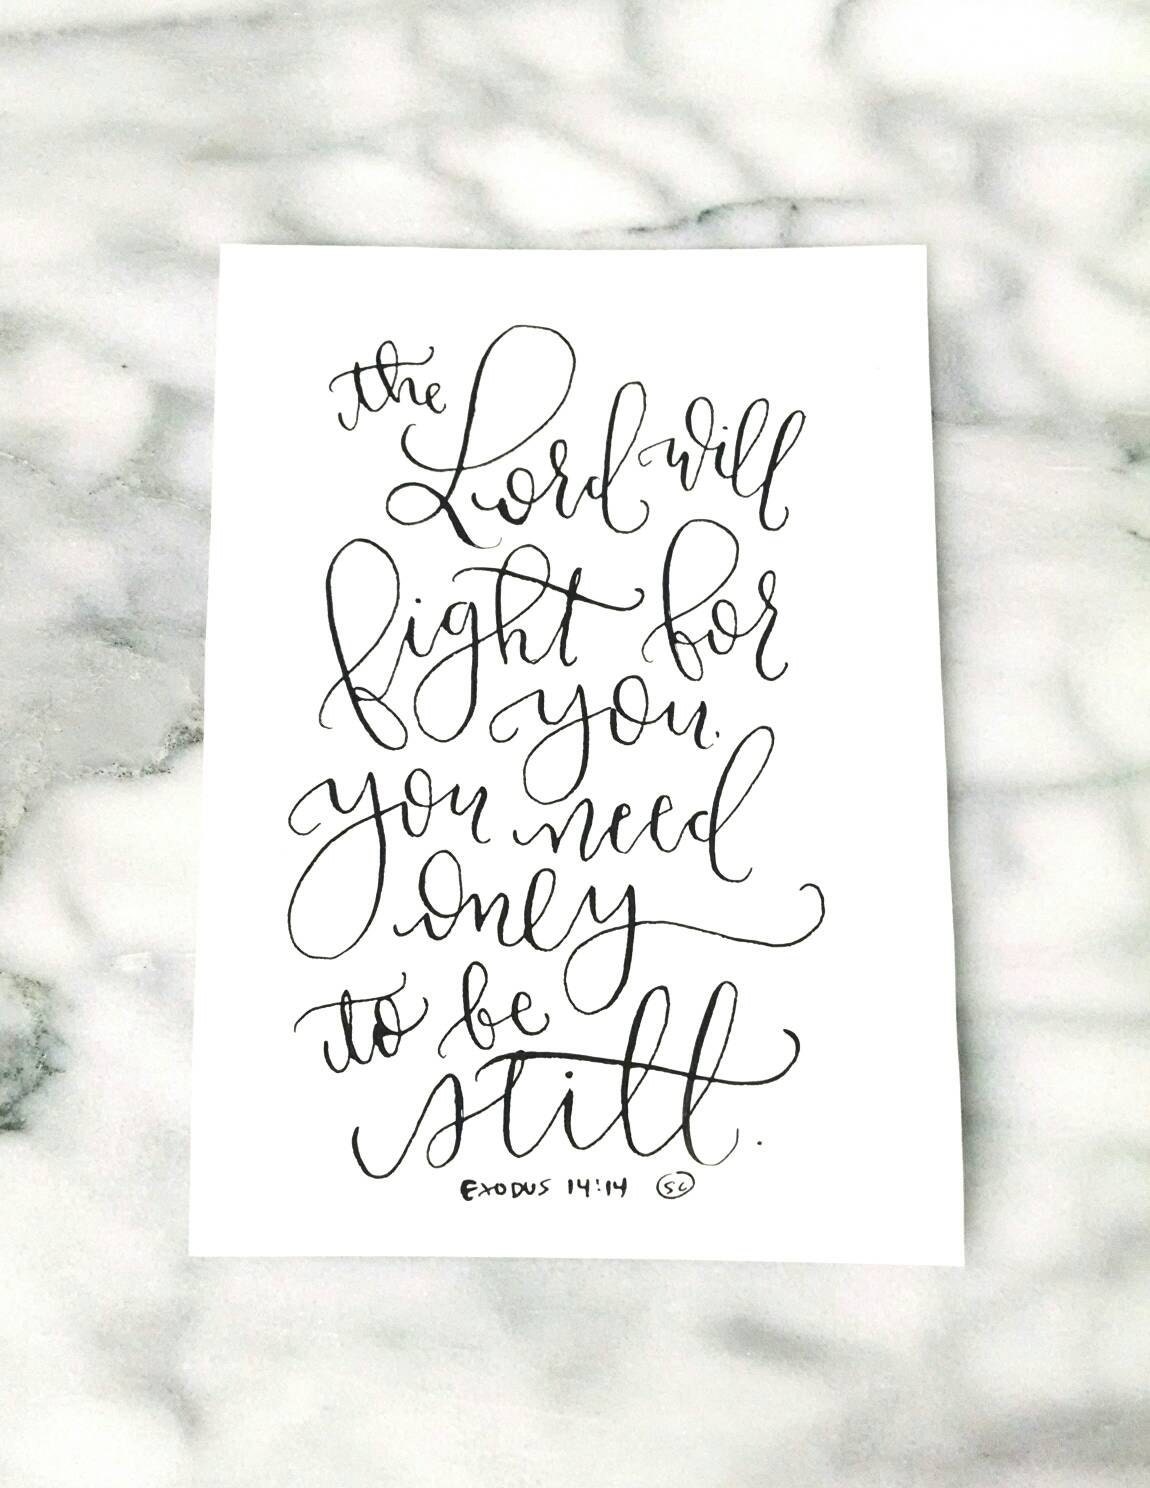 the Lord will
fight for
you.
you need
only
to be
still.
EXODUS 14:14 SC